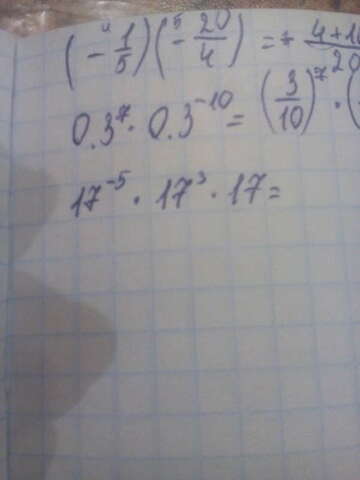 (-1/5)(-20/4) = + 4+10/20
0.3^7 · 0.3^-10 = (3/10)^7 · (
17^-5 · 17^3 · 17 =